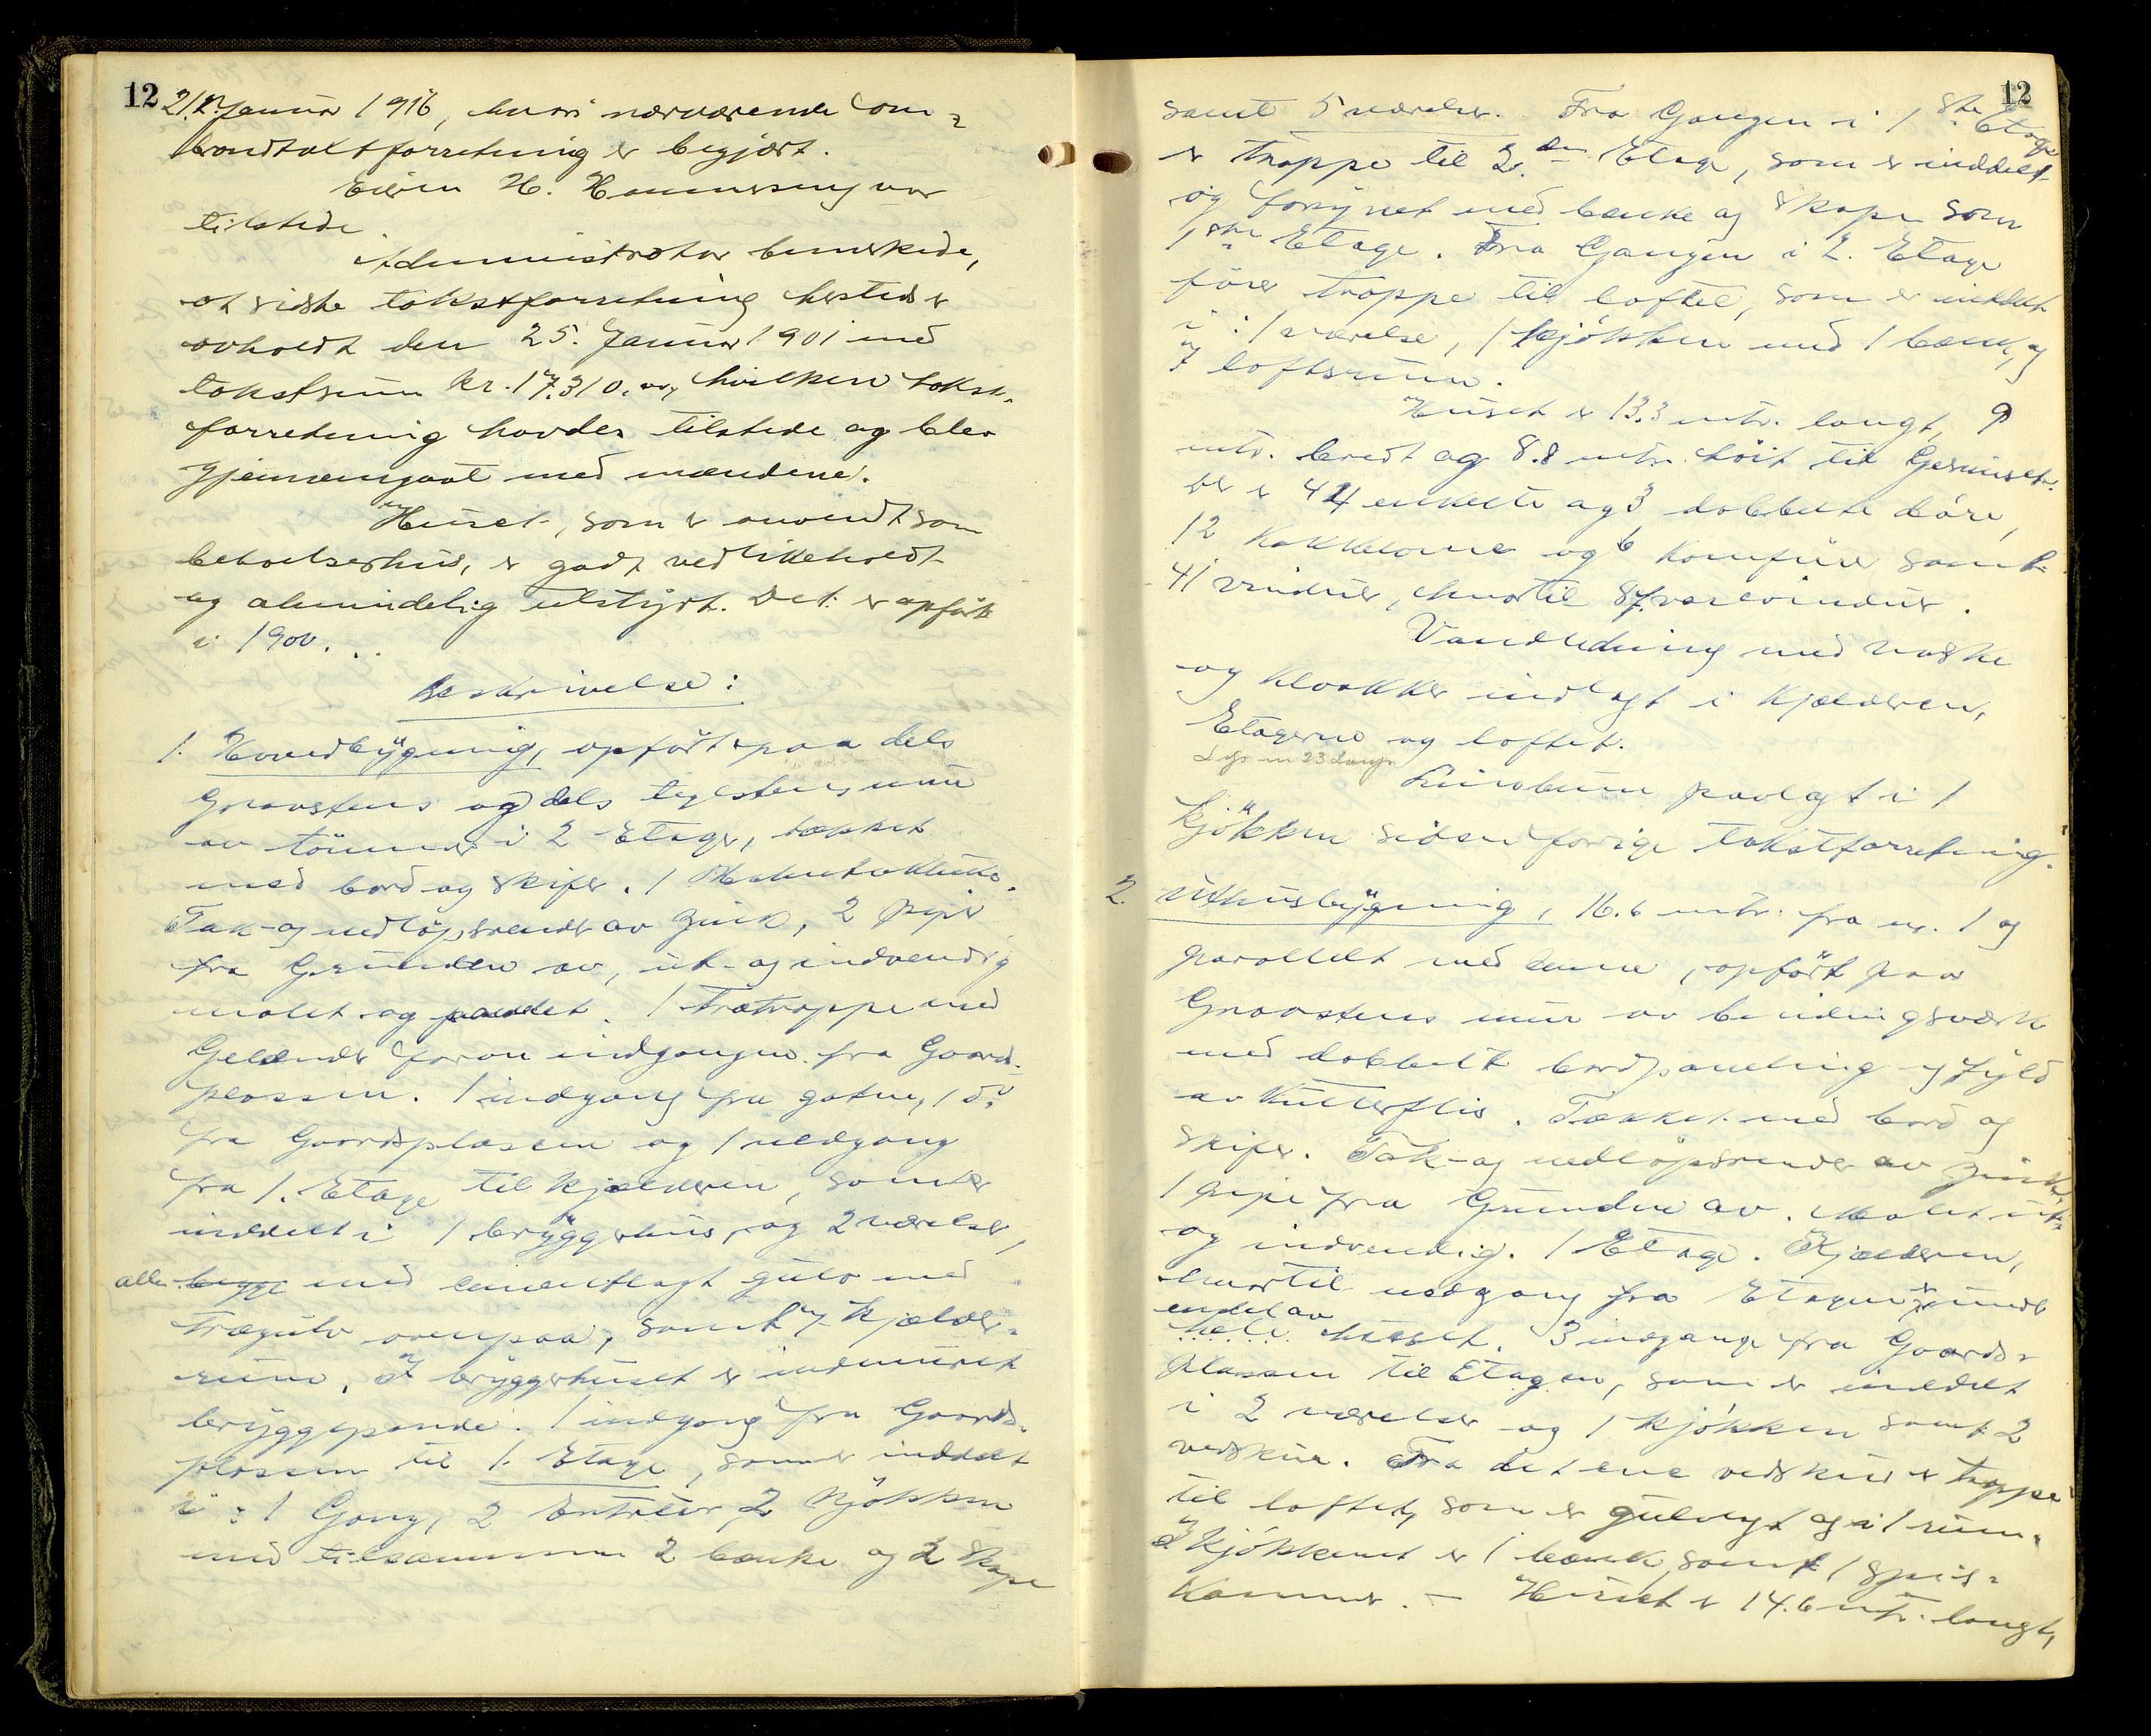 12
21. Januar 1916, hvori nærværende om-
brandtakstforretning er begjært.
Eieren H. Hammerseng var
tilstede.
Administrator bemerkede,
at sidste takstforretning hersteds er
avholdt den 25. Januar 1901 med
takstsum kr. 17.310.00, hvilken takst-
forretning havdes tilstede og blev
gjennemgaat med mændene.
Huset, som er anvendt som
beboelseshus, er godt vedlikeholdt
og almindelig utstyrt. Det er opført
i 1900...
Beskrivelse:
1. Hovedbygning, opført paa dels
Graastens og dels teglstens mur
av tømmer i 2 Etager, tækket
med bord og skifer. 1
Tak- og nedløpsrender av zink, 2 piper
fra Grunden av, ut- og indvendig
malet og panelet. 1 Trætrappe med
Gelænder foran indgangen fra Gaards-
plassen. 1 indgang fra gaten, 1 do
fra Gaardsplassen og 1 nedgang
fra 1. Etage til kjælderen, som er
inddelt i 1 bryggerhus, og 2 værelser,
alle begge med cementlagt gulv med
Trægulv ovenpaa, samt 7 kjælder-
rum. I bryggerhuset er indmuret
bryggepande. 1 indgang fra Gaards-
plassen til 1. Etage, som er inddelt
i: 1 Gang, 2 Entreer, 2 kjøkken
med tilsammen 2 bænke og 2 skape
12
samt 5 værelser. Fra Gangen i 1ste Etage
er trappe til 2.den Etage, som er inddelt
og forsynet med bænke og skape som
1ste Etage. Fra Gangen i 2. Etage
fører trappe til loftet, som er inddelt
i: 1 værelse, 1 kjøkken med 1 bænk, og
7 loftsrum.
Huset er 13.3 mtr. langt, 9
mtr. bredt og 8.8 mtr. høit til Gesimset.
Der er 44 enkelte og 3 dobbelte døre,
12 kakkelovne og 6 komfurer samt
41 vinduer, hvortil 87 varevinduer.
Vandledning med vaske
og kloakker indlagt i kjælderen,
Etagerne og loftet.
Lys m 23 lamper
Linoleum paalagt i 1
kjøkken siden forrige takstforretning.
2. Uthusbygning, 16.6 mtr. fra nr. 1 og
parallelt med denne, opført paa
Graastens mur av bindingsværk
med dobbelt bordpaneling og fyld
av Kutterflis. Tækket med bord og
skifer. Tak- og nedløpsrender av zink,
1 pipe fra Grunden av. Malet ut-
og indvendig. 1 Etage. Kjælderen,
hvortil nedgang fra Etagen er under
endel av
hele huset. 3 indgange fra Gaards-
plassen til Etagen, som er inddelt
i 2 værelser og 1 kjøkken samt 2
vedskur. Fra det ene vedskur er trappe
til loftet, som er gulvlagt og i 1 rum.
I kjøkkenet er 1 bænk, samt 1 spis-
kammer. – Huset er 14.6 mtr. langt,